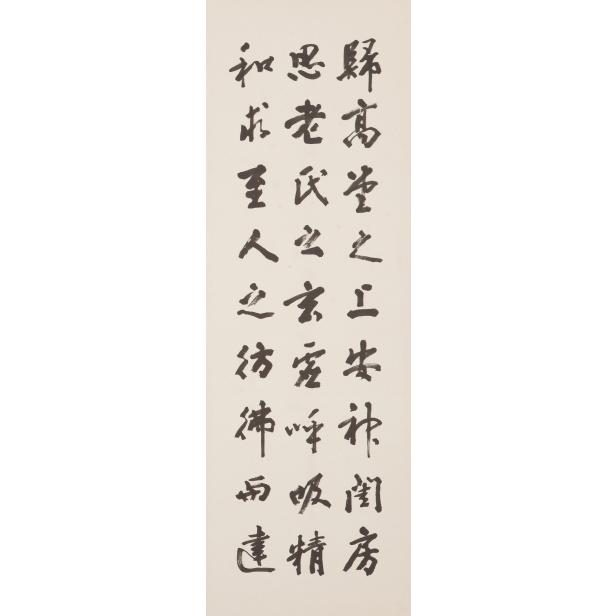 歸高堂之上安神閨房
思老氏之玄虛呼吸精
和求至人之彷彿而達